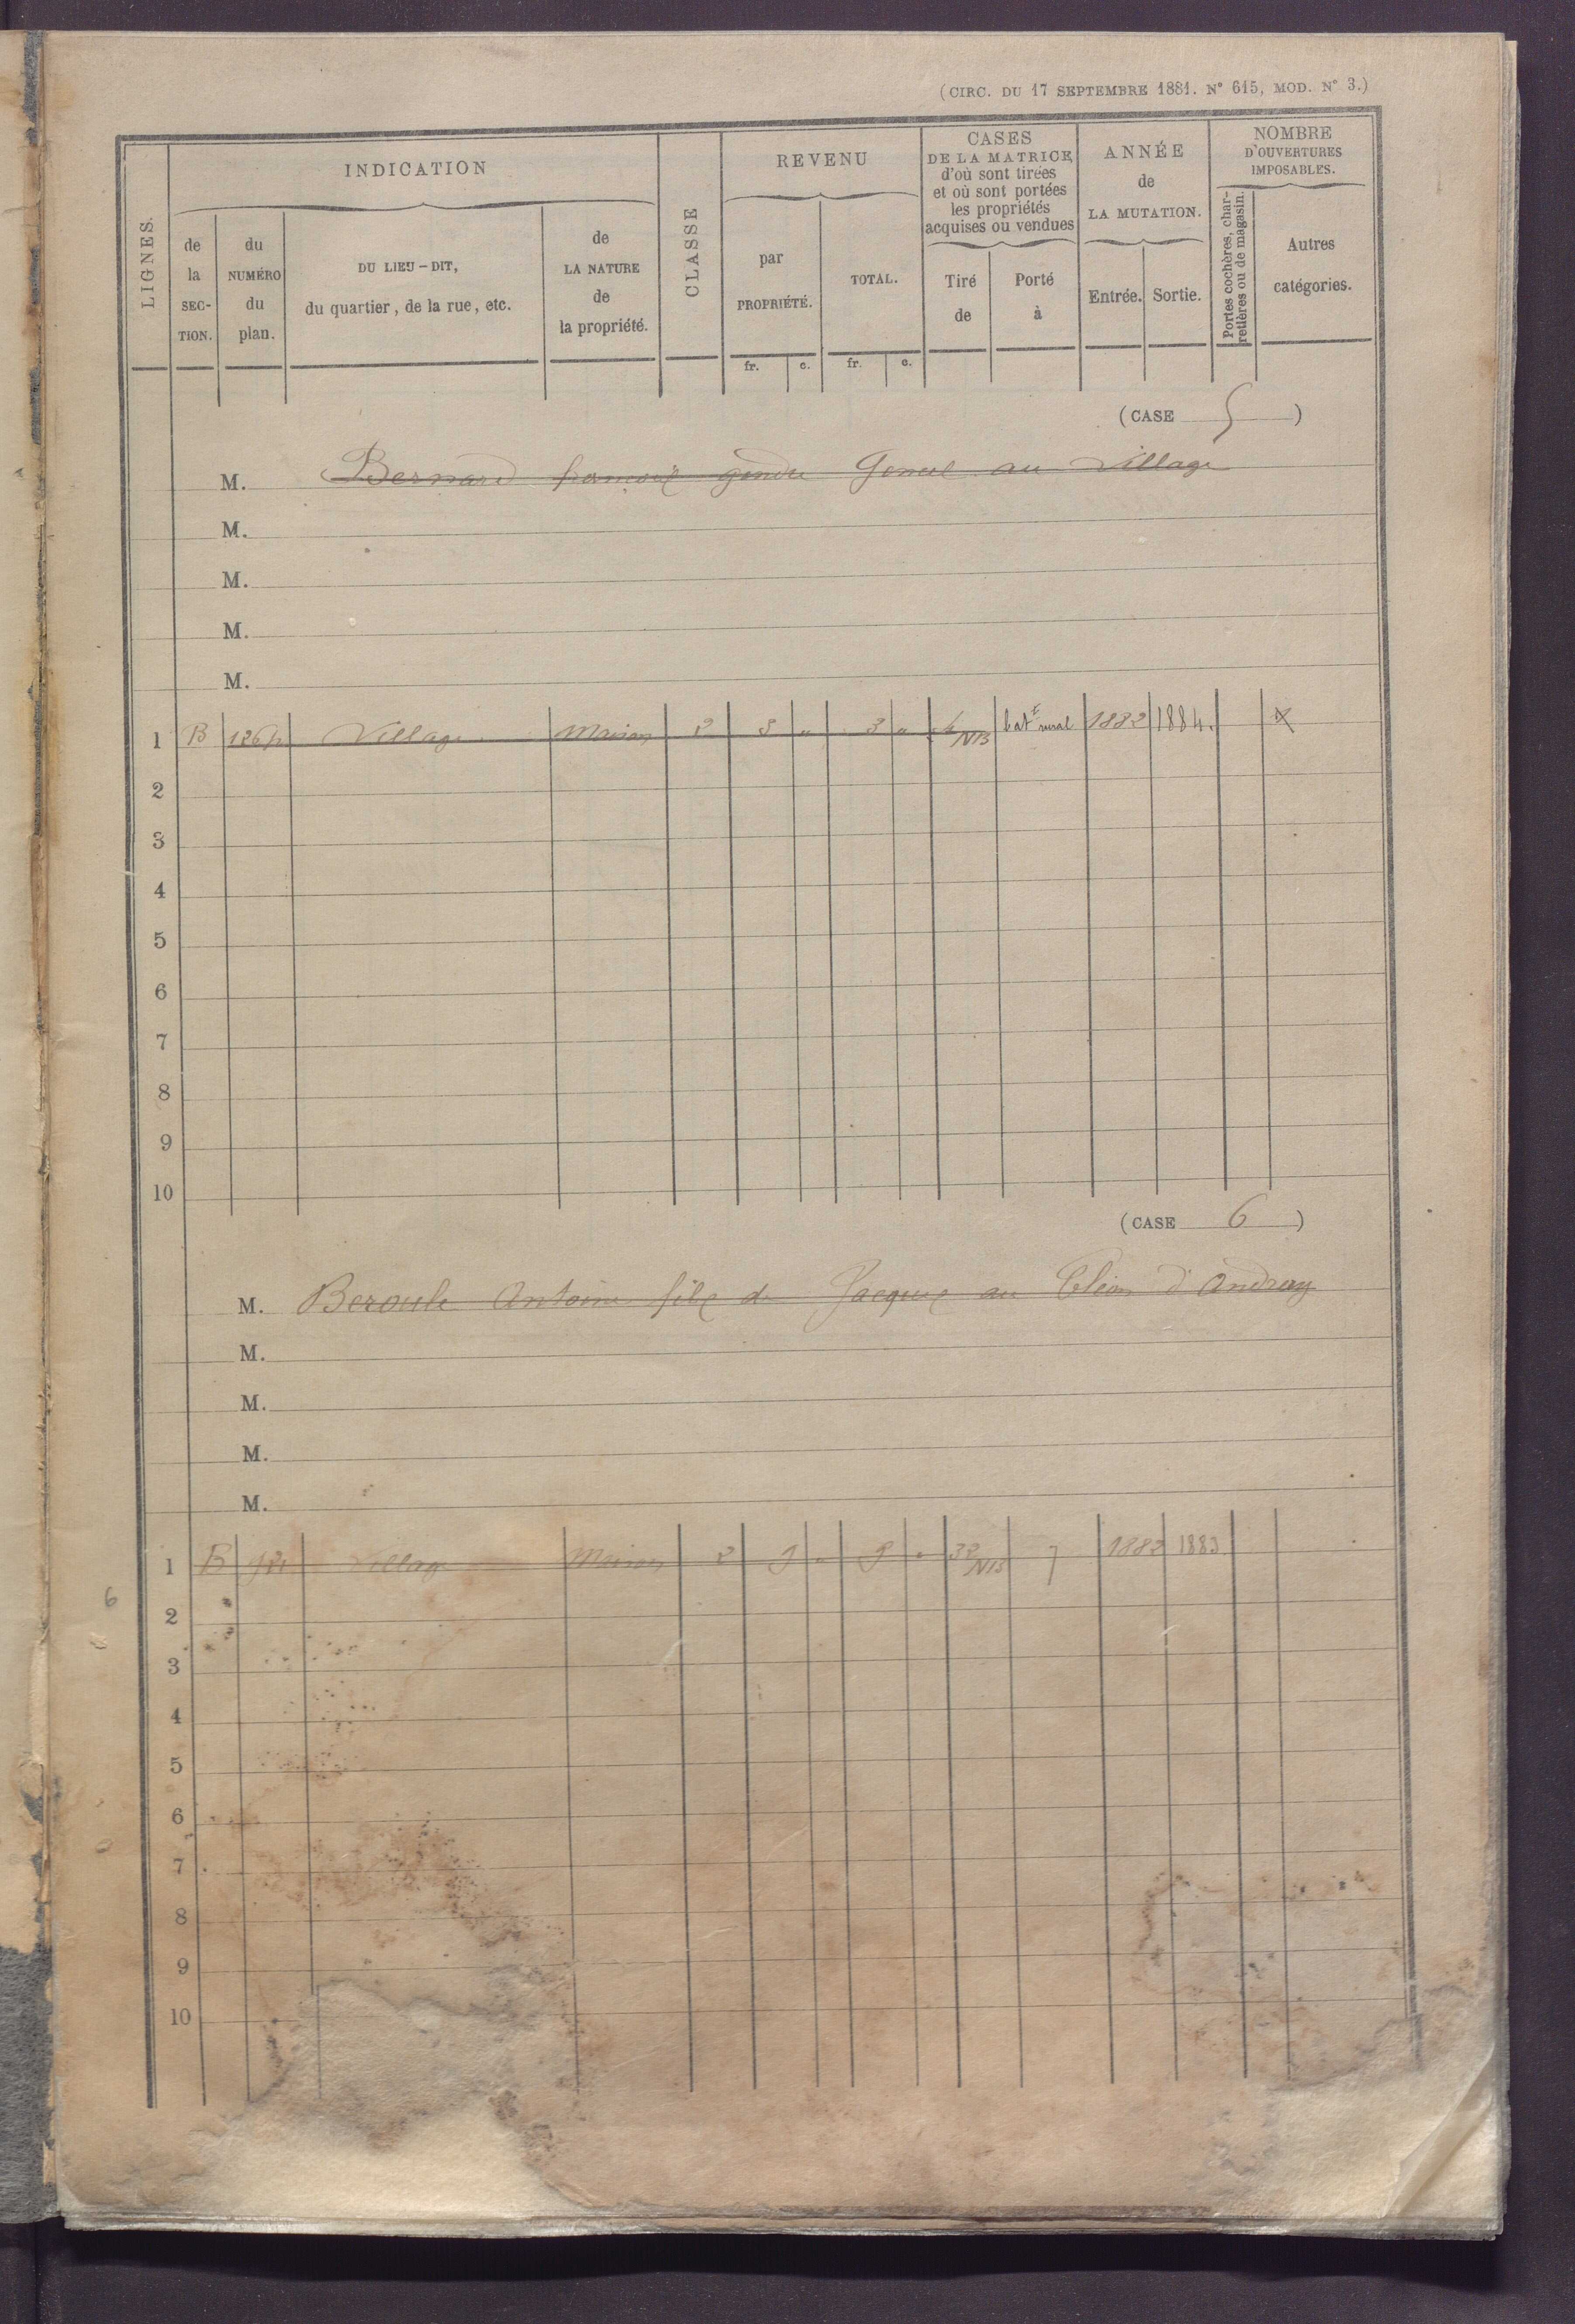 (CIRC. DU 17 SEPTEMBRE 1881. N° 615, MOD. N° 3.)
LIGNES.
INDICATION
de la SEC-TION.
du NUMÉRO du plan.
DU LIEU-DIT, du quartier, de la rue, etc.
de LA NATURE de la propriété.
CLASSE
REVENU
par PROPRIÉTÉ.
TOTAL.
fr. c. fr. c.
CASES DE LA MATRICE d'où sont tirées et où sont portées les propriétés acquises ou vendues
Tiré de
Porté à
ANNÉE de LA MUTATION.
Entrée. Sortie.
NOMBRE D'OUVERTURES IMPOSABLES.
Portes cochères, charretières ou de magasin.
Autres catégories.
(CASE 5)
M. Bernard françois gendre au village
M.
M.
M.
M.
1 B 126p Village Maison 2 3 " 3 " NB bat^t rural 1882 1884.
2
3
4
5
6
7
8
9
10
(CASE 6)
M. Beroule Antoine fils de Jacques au d'Andray
M.
M.
M.
M.
1 B Village Maison 2 " " 32 NB 7 1882 1883
2
3
4
5
6
7
8
9
10
6